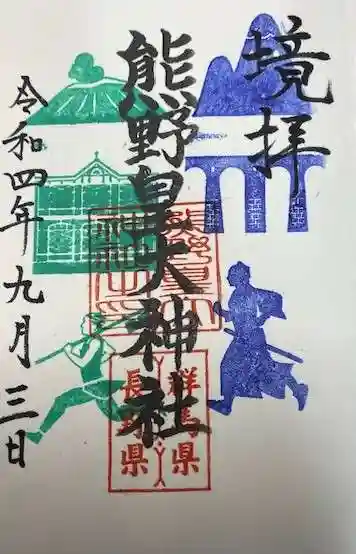 境拝
熊野皇大神社
令和四年九月三日
群馬県
長野県